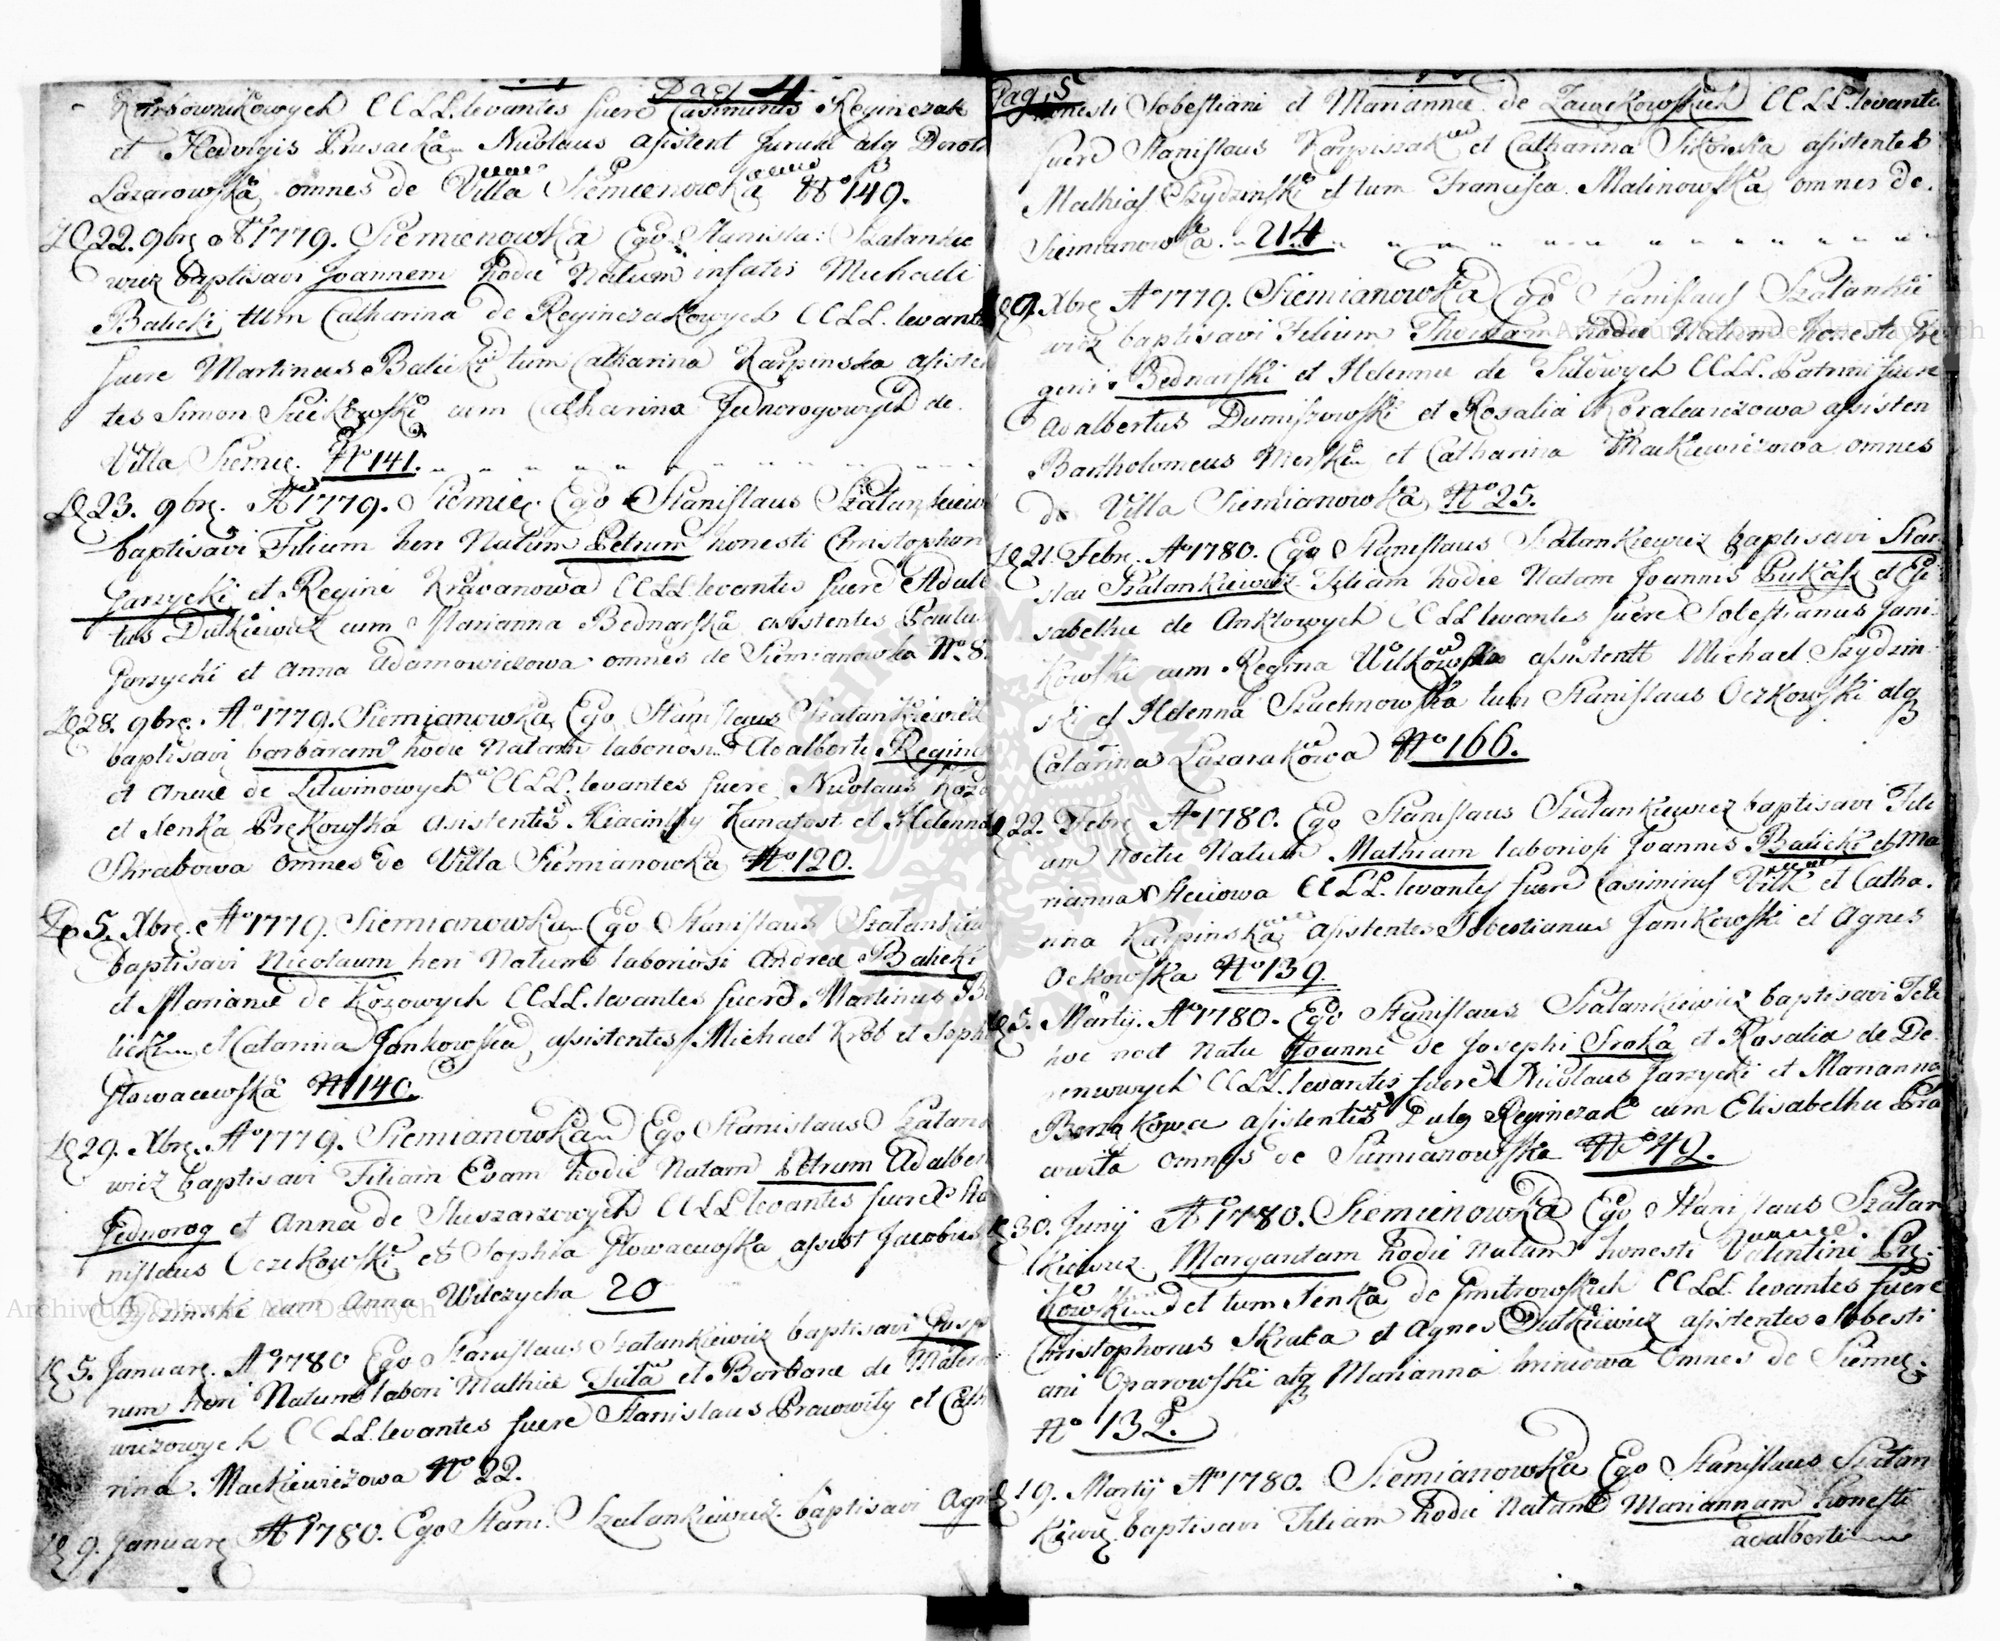 Pag 4
Karsownikowych CCLL. levantes fuere Casimirus Reginczak
et Hedvigis Prusacka Nicolaus asistent Juruk atq Dorot
Lazarowska omnes de Villa Siemienowka No 149.
D 22. 9bre Ao 1779. Siemienowka Ego Stanisla: Szatankie
wicz baptisavi Joannem hodie Natum infatis Michaeli
Balicki tum Catharina de Reginczakowych CCLL. levant
fuere Martinus Balicki tum Catharina Karpinska asisten
tes Simon cum Catharina Jednorogowych de
Villa Siemie. No 141.
D 23. 9bre. Ao 1779. Siemie. Ego Stanislaus Szatankiewi
baptisavi Filium heri Natum Petrum honesti Christophori
Garzycki et Regini Krawanowa CCLL levantes fuere Adalb
tus Dutkiewicz cum Marianna Bednarska asistentes Paulu
Garzycki et Anna Adamowiczowa omnes de Siemianowka No 8.
D 28. 9bre. Ao 1779. Siemianowka Ego Stanislaus Szatankiewicz
baptisavi barbaram hodie Natam laboriosi Adalberti Regina
et Annae de Litwinowych CCLL. levantes fuere Nicolaus Kozo
et Nenka Prękowska asistentes Hiacinty Kanafost et Helenna
Skrabowa omnes de Villa Siemianowka No 120.
D 5. Xbre. Ao 1779. Siemianowka Ego Stanislaus Szatankie
baptisavi Nicolaum heri Natum laboriosi Andrea Balicki
et Marianae de Kozowych CCLL. levantes fuere Martinus B
licki Catarina Jankowska, asistentes Michael Krob et Soph
Głowacewska N 140.
D 29. Xbre. Ao 1779. Siemianowka Ego Stanislaus Szatan
wicz baptisavi Filiam Evam hodie Natam Petrum Adalber
Jednorog et Anna de Sluszarzowych CCLL levantes fuere Sta
nislaus Oczkowski et Sophia Głowacewska asist Jacobus
Szydzinski cum Anna Wilczycha 20
D 5. Januare. Ao 1780 Ego Stanislaus Szatankiewicz baptisavi Gasp
rum heri Natum labori Mathiae Juta et Barbarae de Matern
wiczowych CCLL. levantes fuere Stanislaus Prawowity et Cath
rina. Mackiewiczowa No 22.
D 9. Januare Ao 1780. Ego Stani. Szatankiewicz. baptisavi Agn
Pag 5
honesti Sobestiani et Mariannae de Zaiackowskich CCLL. levante
fuere Stanislaus Karpiszak et Catharina Sikorska asistentes
Mathias Szydzinski et tum Francisca Malinowska omnes de
Siemianowka. 214
D 9. Xbre Ao 1779. Siemianowka Ego Stanislaus Szatankie
wicz baptisavi Filium Thomam hodie Natum honesti Gre
gorii Bednarski et Helennae de CCLL. Patrini fuere
Adalbertus Dumiszowski et Rosalia Koralewiczowa asisten
Bartholomeus et Catharina Mackiewiczowa omnes
de Villa Siemianowka No 25.
D 21. Febre. Ao 1780. Ego Stanislaus Szatankiewicz baptisavi Stan
slai Szatankiewicz Filiam hodie Natam Joannis Pukass et Eli
sabethae de Ankiowych CCLL levantes fuere Sobestianus Jani
kowski cum Regina Witkowska asistentt Michael Szydzin
ski et Helenna Szachnowska tum Stanislaus Oczkowski atq
Catarina Lazarakowa No 166.
D 22. Febre Ao 1780. Ego Stanislaus Szatankiewicz baptisavi Fili
um noctu Natum Mathiam laboriosi Joannis Balicki et Ma
rianna CCLL. levantes fuere Casimirus Vilk et Catha.
rina Karpinska asistentes Sobestianus Janikowski et Agnes
Ockowska No 139
D 5. Martij. Ao 1780. Ego Stanislaus Szatankiewicz baptisavi Fili
hoc noct Natu Joanne de Josephi Sroka et Rosalia de De
renwowych CCLL. levantes fuere Nicolaus Jarzycki et Marianna
Borzakowa asistentes Pulg Reginczak cum Elisabetha Pra
wuita omnes de Siemianowska No 49.
D 30. Junij Ao 1780. Siemienowka Ego Stanislaus Szatan
kiewicz Margantam hodie natam honesti Valentini Pre
kowski et tum Nenka de Jmitrowskich CCLL. levantes fuere
Christophorus Skraba et Agnes Dutkiewicz asistentes Sobesti
ani Oparowski atq Marianna hriniowa omnes de Siemie.
No 132.
D 19. Martij Ao 1780. Siemianowka Ego Stanislaus Szatan
kiewicz baptisavi Filiam hodie Natam Mariannam honesti
adalberti
Archiwum Główne Akt Dawnych